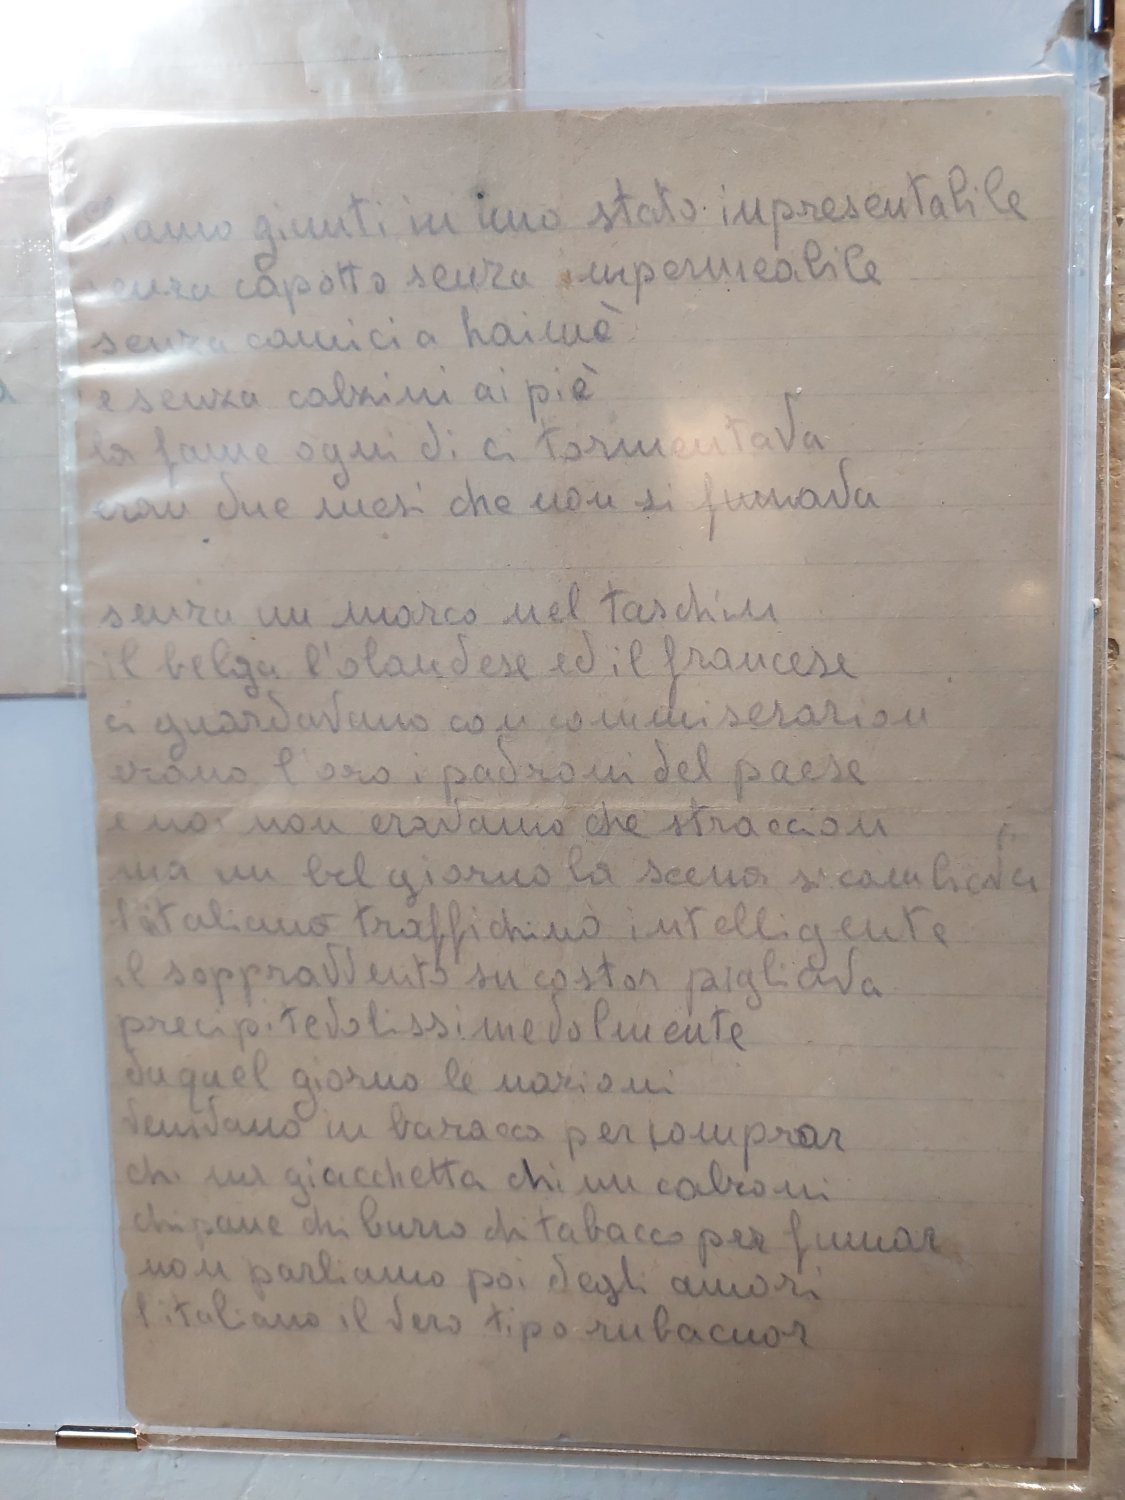 Siamo giunti in uno stato inpresentabile
senza capotto senza inpermeabile
senza camicia haimè
e senza calzini ai piè
la fame ogni dì ci tormentava
eran due mesi che non si fumava
senza un marco nel taschin
il belga l'olandese ed il francese
ci guardavano con commiserazion
erano l'oro i padroni del paese
e noi non eravamo che straccion
ma un bel giorno la scena si cambiava
l'italiano traffichino intelligente
il sopravvento su costor pigliava
precipitevolissimevolmente
da quel giorno le nazioni
venivano in baracca per comprar
chi una giacchetta chi un calzoni
chi pane chi burro chi tabacco per fumar
non parliamo poi degli amori
l'italiano il vero tipo rubacuor